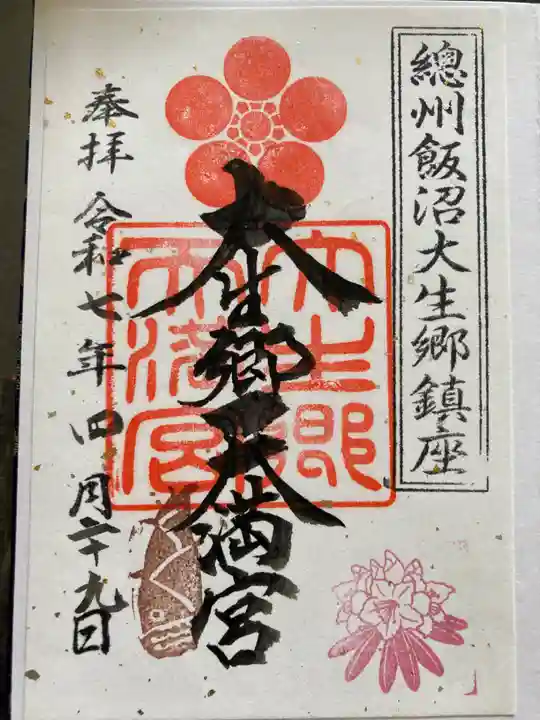 總州飯沼大生郷鎮座
大生郷天満宮
大生郷
天満宮
奉拝 令和七年四月二十九日